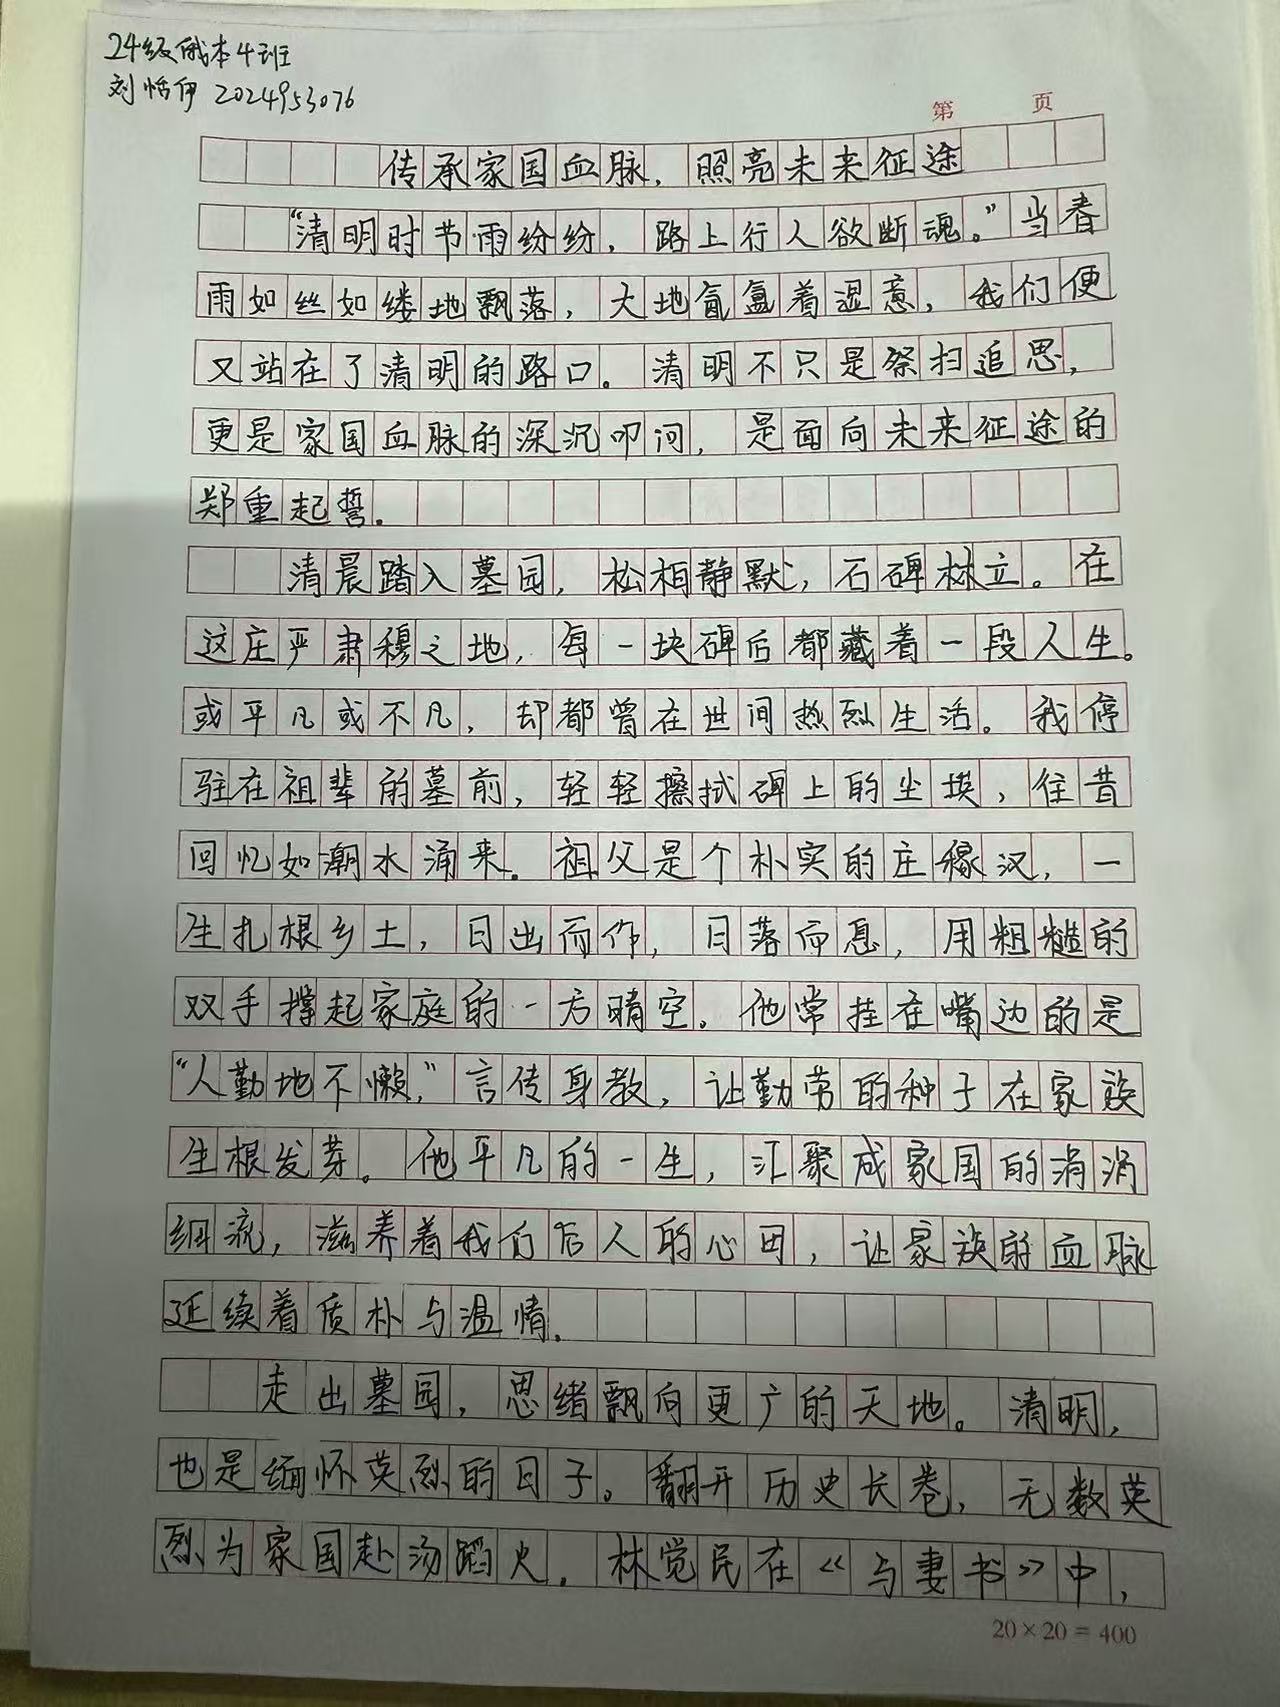 24级俄本4班
刘恬伊 2024953076
第 页
传承家国血脉，照亮未来征途
“清明时节雨纷纷，路上行人欲断魂。”当春
雨如丝如缕地飘落，大地氤氲着湿意，我们便
又站在了清明的路口。清明不只是祭扫追思，
更是家国血脉的深沉叩问，是面向未来征途的
郑重起誓。
清晨踏入墓园，松柏静默，石碑林立。在
这庄严肃穆之地，每一块碑后都藏着一段人生。
或平凡或不凡，却都曾在世间热烈生活。我停
驻在祖辈的墓前，轻轻擦拭碑上的尘埃，往昔
回忆如潮水涌来。祖父是个朴实的庄稼汉，一
生扎根乡土，日出而作，日落而息，用粗糙的
双手撑起家庭的一方晴空。他常挂在嘴边的是
“人勤地不懒，”言传身教，让勤劳的种子在家族
生根发芽。他平凡的一生，汇聚成家国的涓涓
细流，滋养着我们后人的心田，让家族的血脉
延续着质朴与温情。
走出墓园，思绪飘向更广的天地。清明，
也是缅怀英烈的日子。翻开历史长卷，无数英
烈为家国赴汤蹈火。林觉民在《与妻书》中，
20×20=400